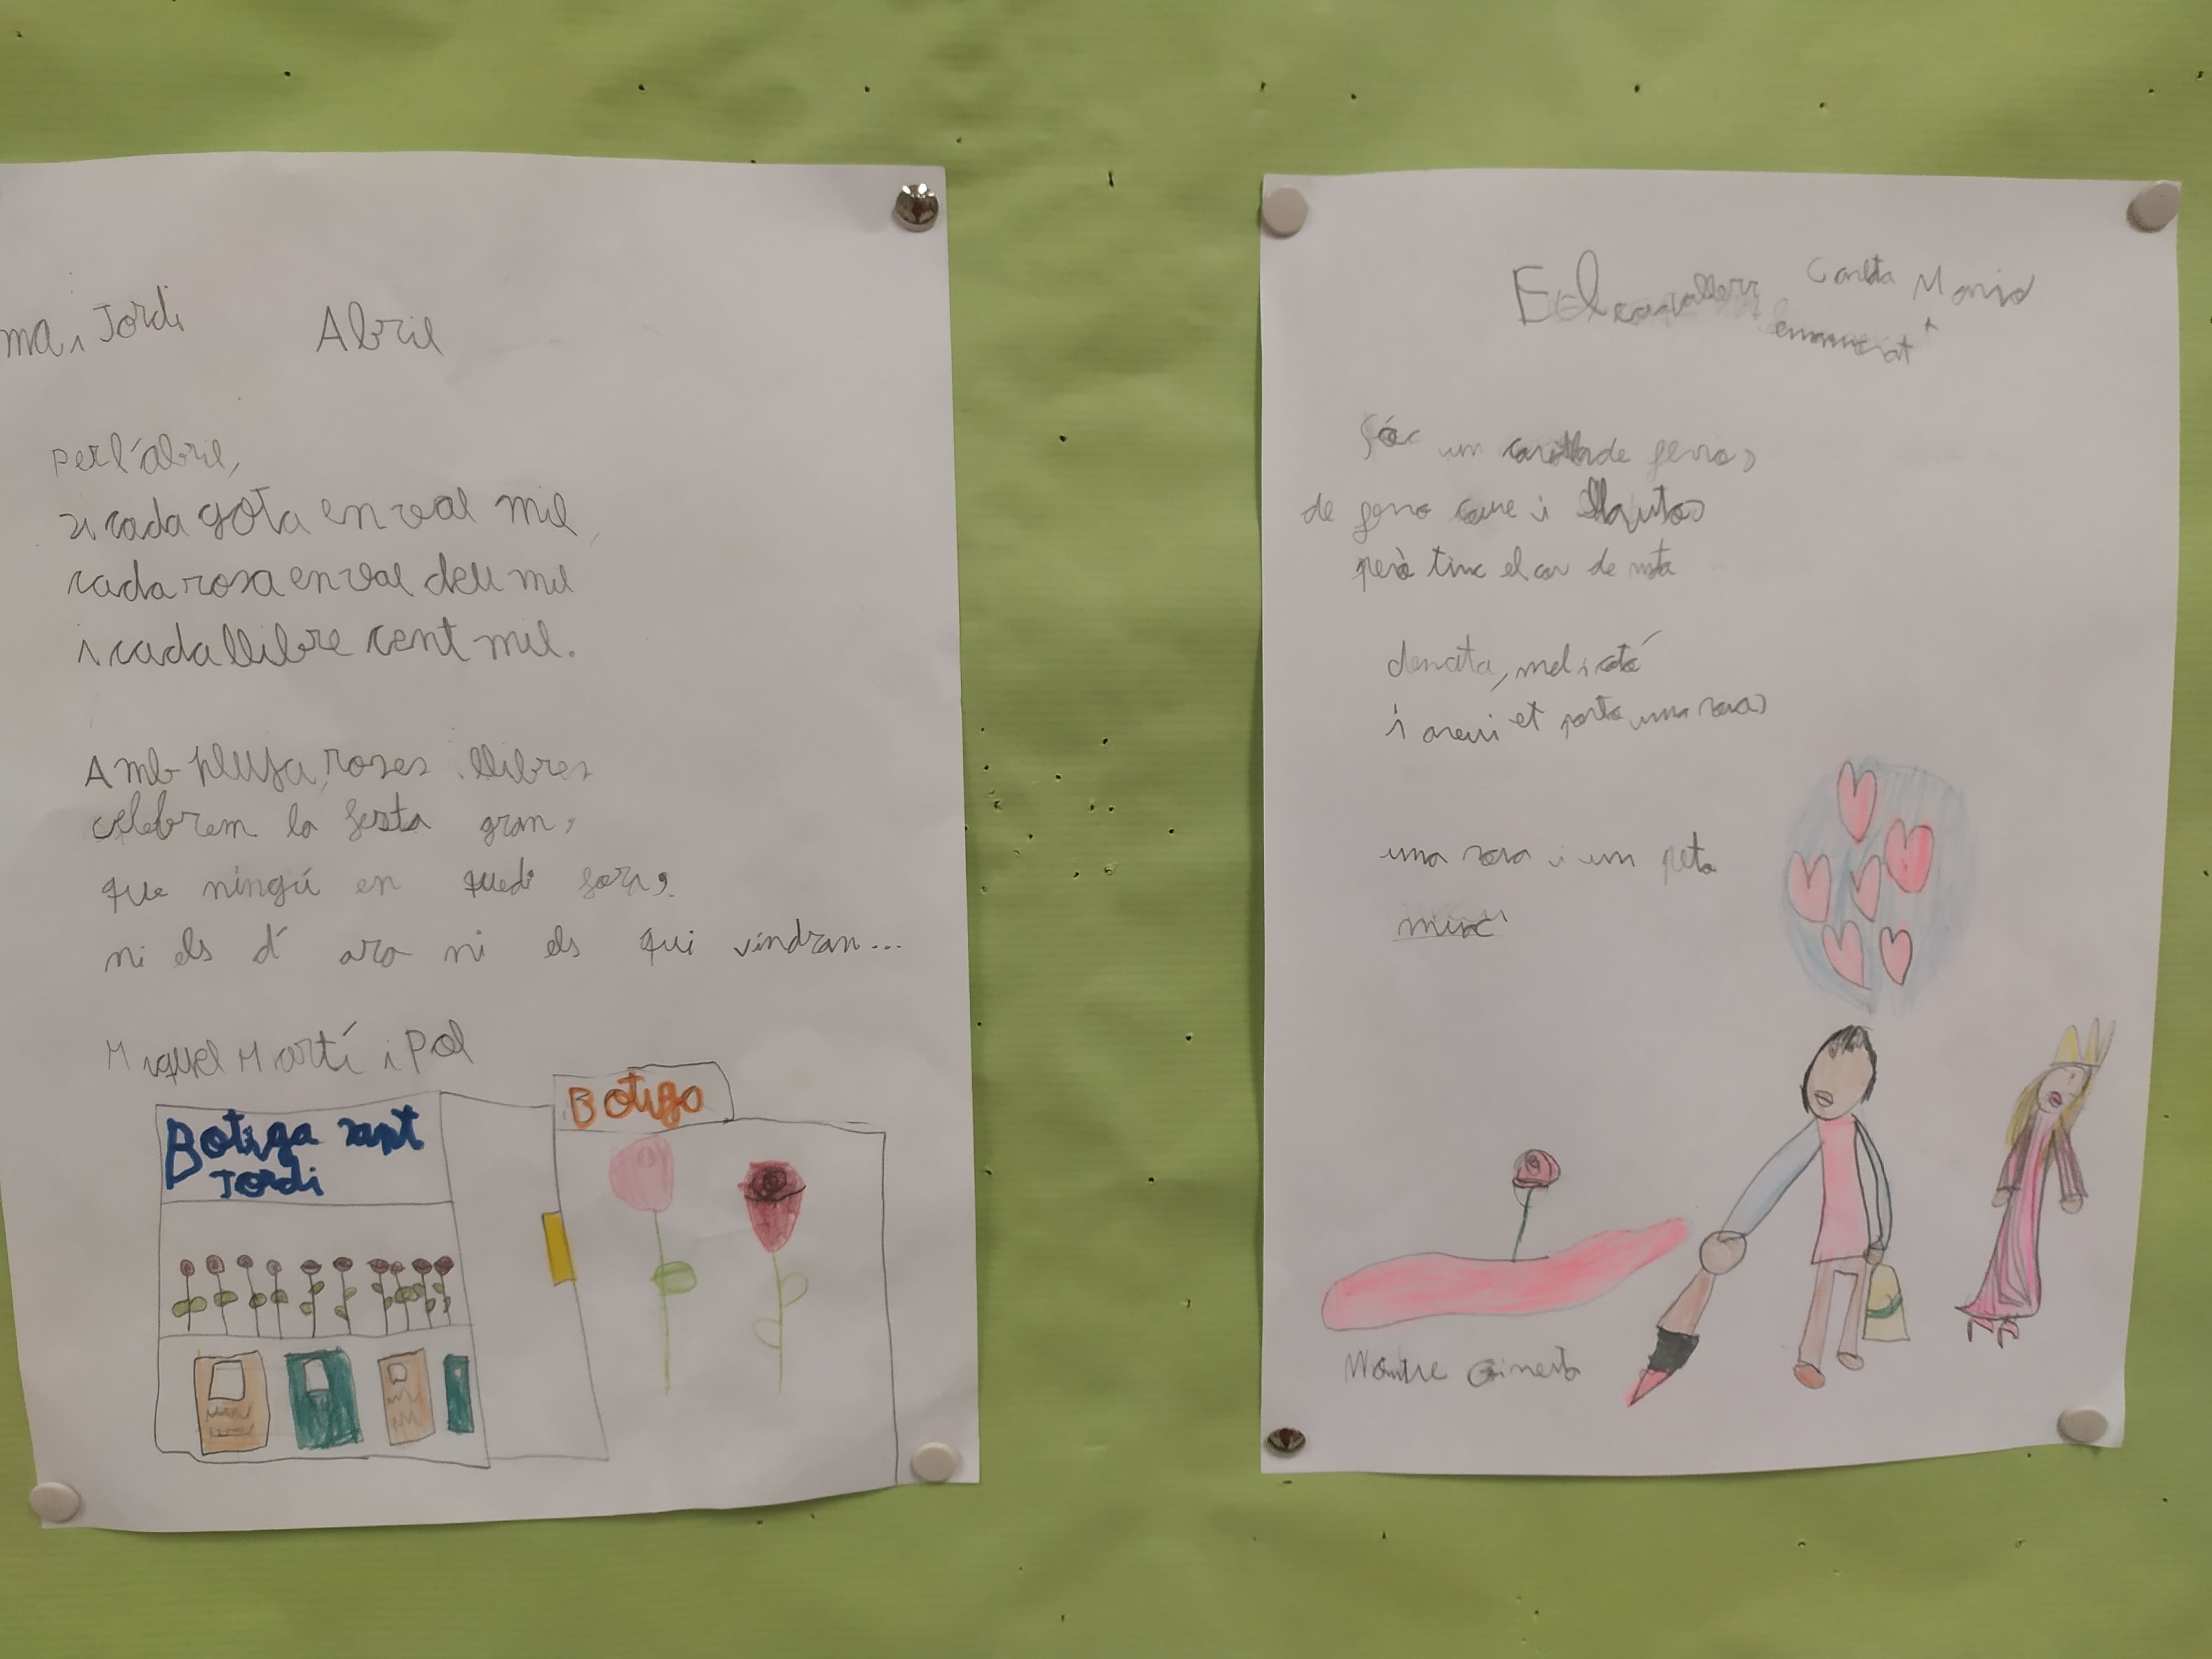 ma i Jordi
Abril
Per l'abril,
si cada gota en val mil
cada rosa en val deu mil
i cada llibre cent mil.
Amb pluja, roses i llibres
celebrem la festa gran,
que ningú en quedi fora,
ni els d'ara ni els qui vindran...
Miquel Martí i Pol
Botiga sant
Jordi
Botiga
El cavaller
enamorat
Sóc un de ferro,
de ferro i llauto
però tinc el cor de nata
de nata, mel i cotó
i avui et porto una rosa
una rosa i un petó
Ginesta